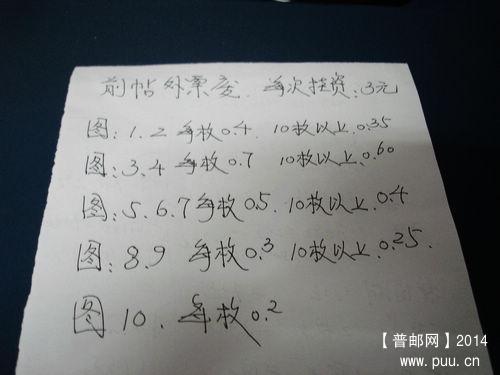 前帖外票废.每次挂资:3元
图:1.2每枚0.4.10枚以上0.35
图:3.4每枚0.7 10枚以上0.60
图:5.6.7每枚0.5.10枚以上0.4
图:8.9 每枚0.3 10枚以上0.25.
图10.每枚0.2
【普邮网】2014
www.puu.cn